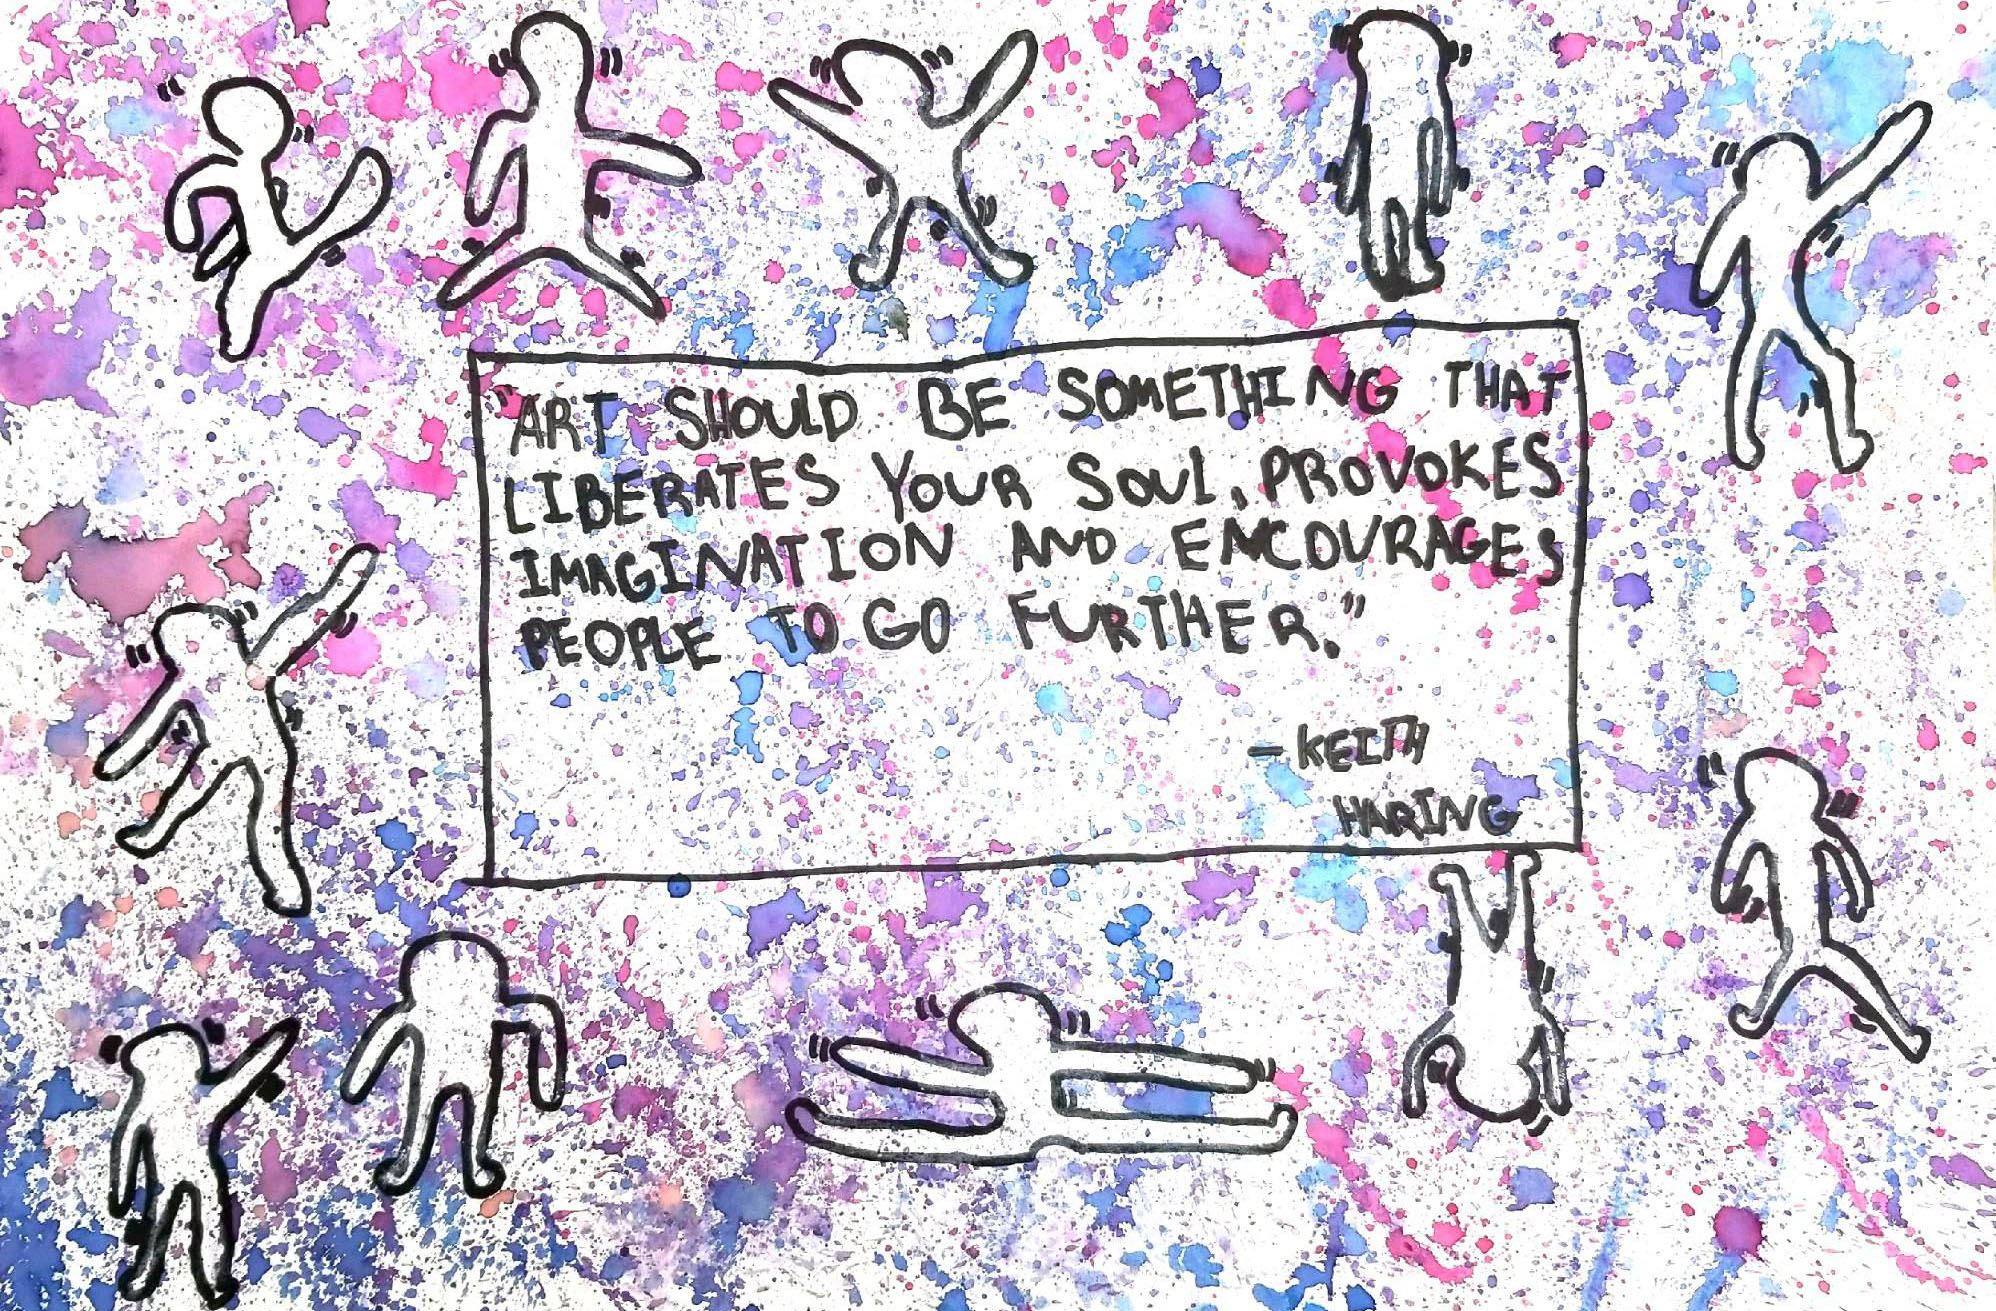 "ART SHOULD BE SOMETHING THAT
LIBERATES YOUR SOUL, PROVOKES
IMAGINATION AND ENCOURAGES
PEOPLE TO GO FURTHER."
-KEITH
HARING